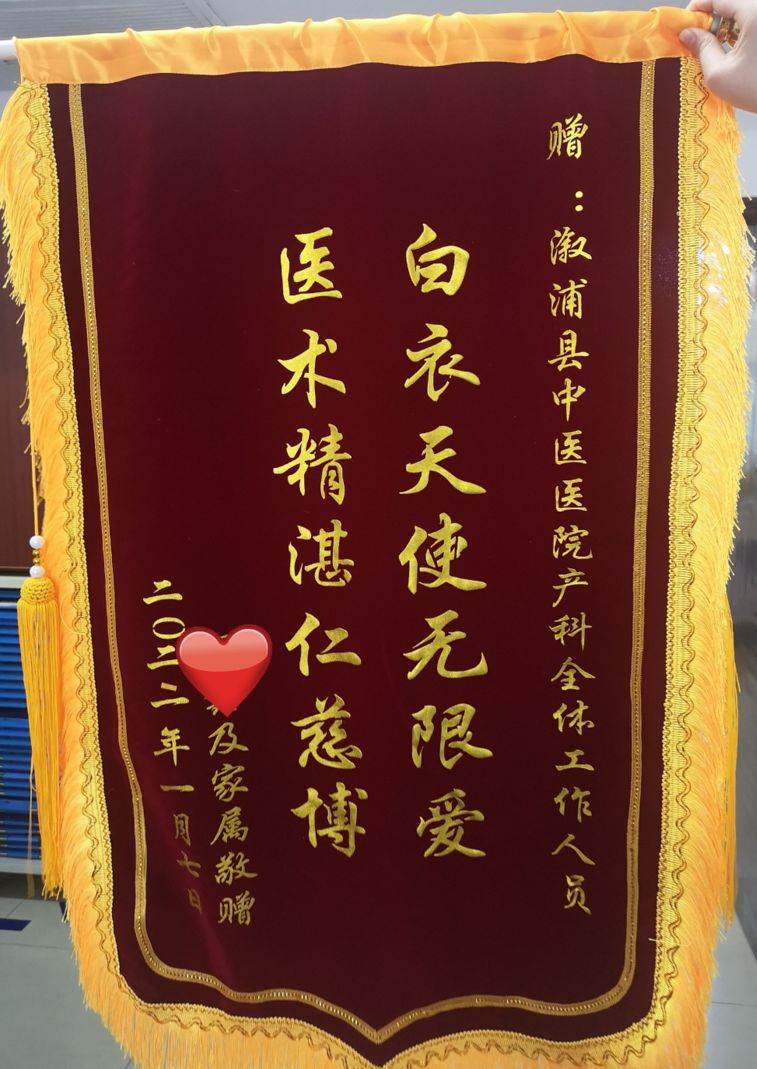 赠：溆浦县中医医院产科全体工作人员
白衣天使无限爱
医术精湛仁慈博
及家属敬赠
二〇二二年一月七日